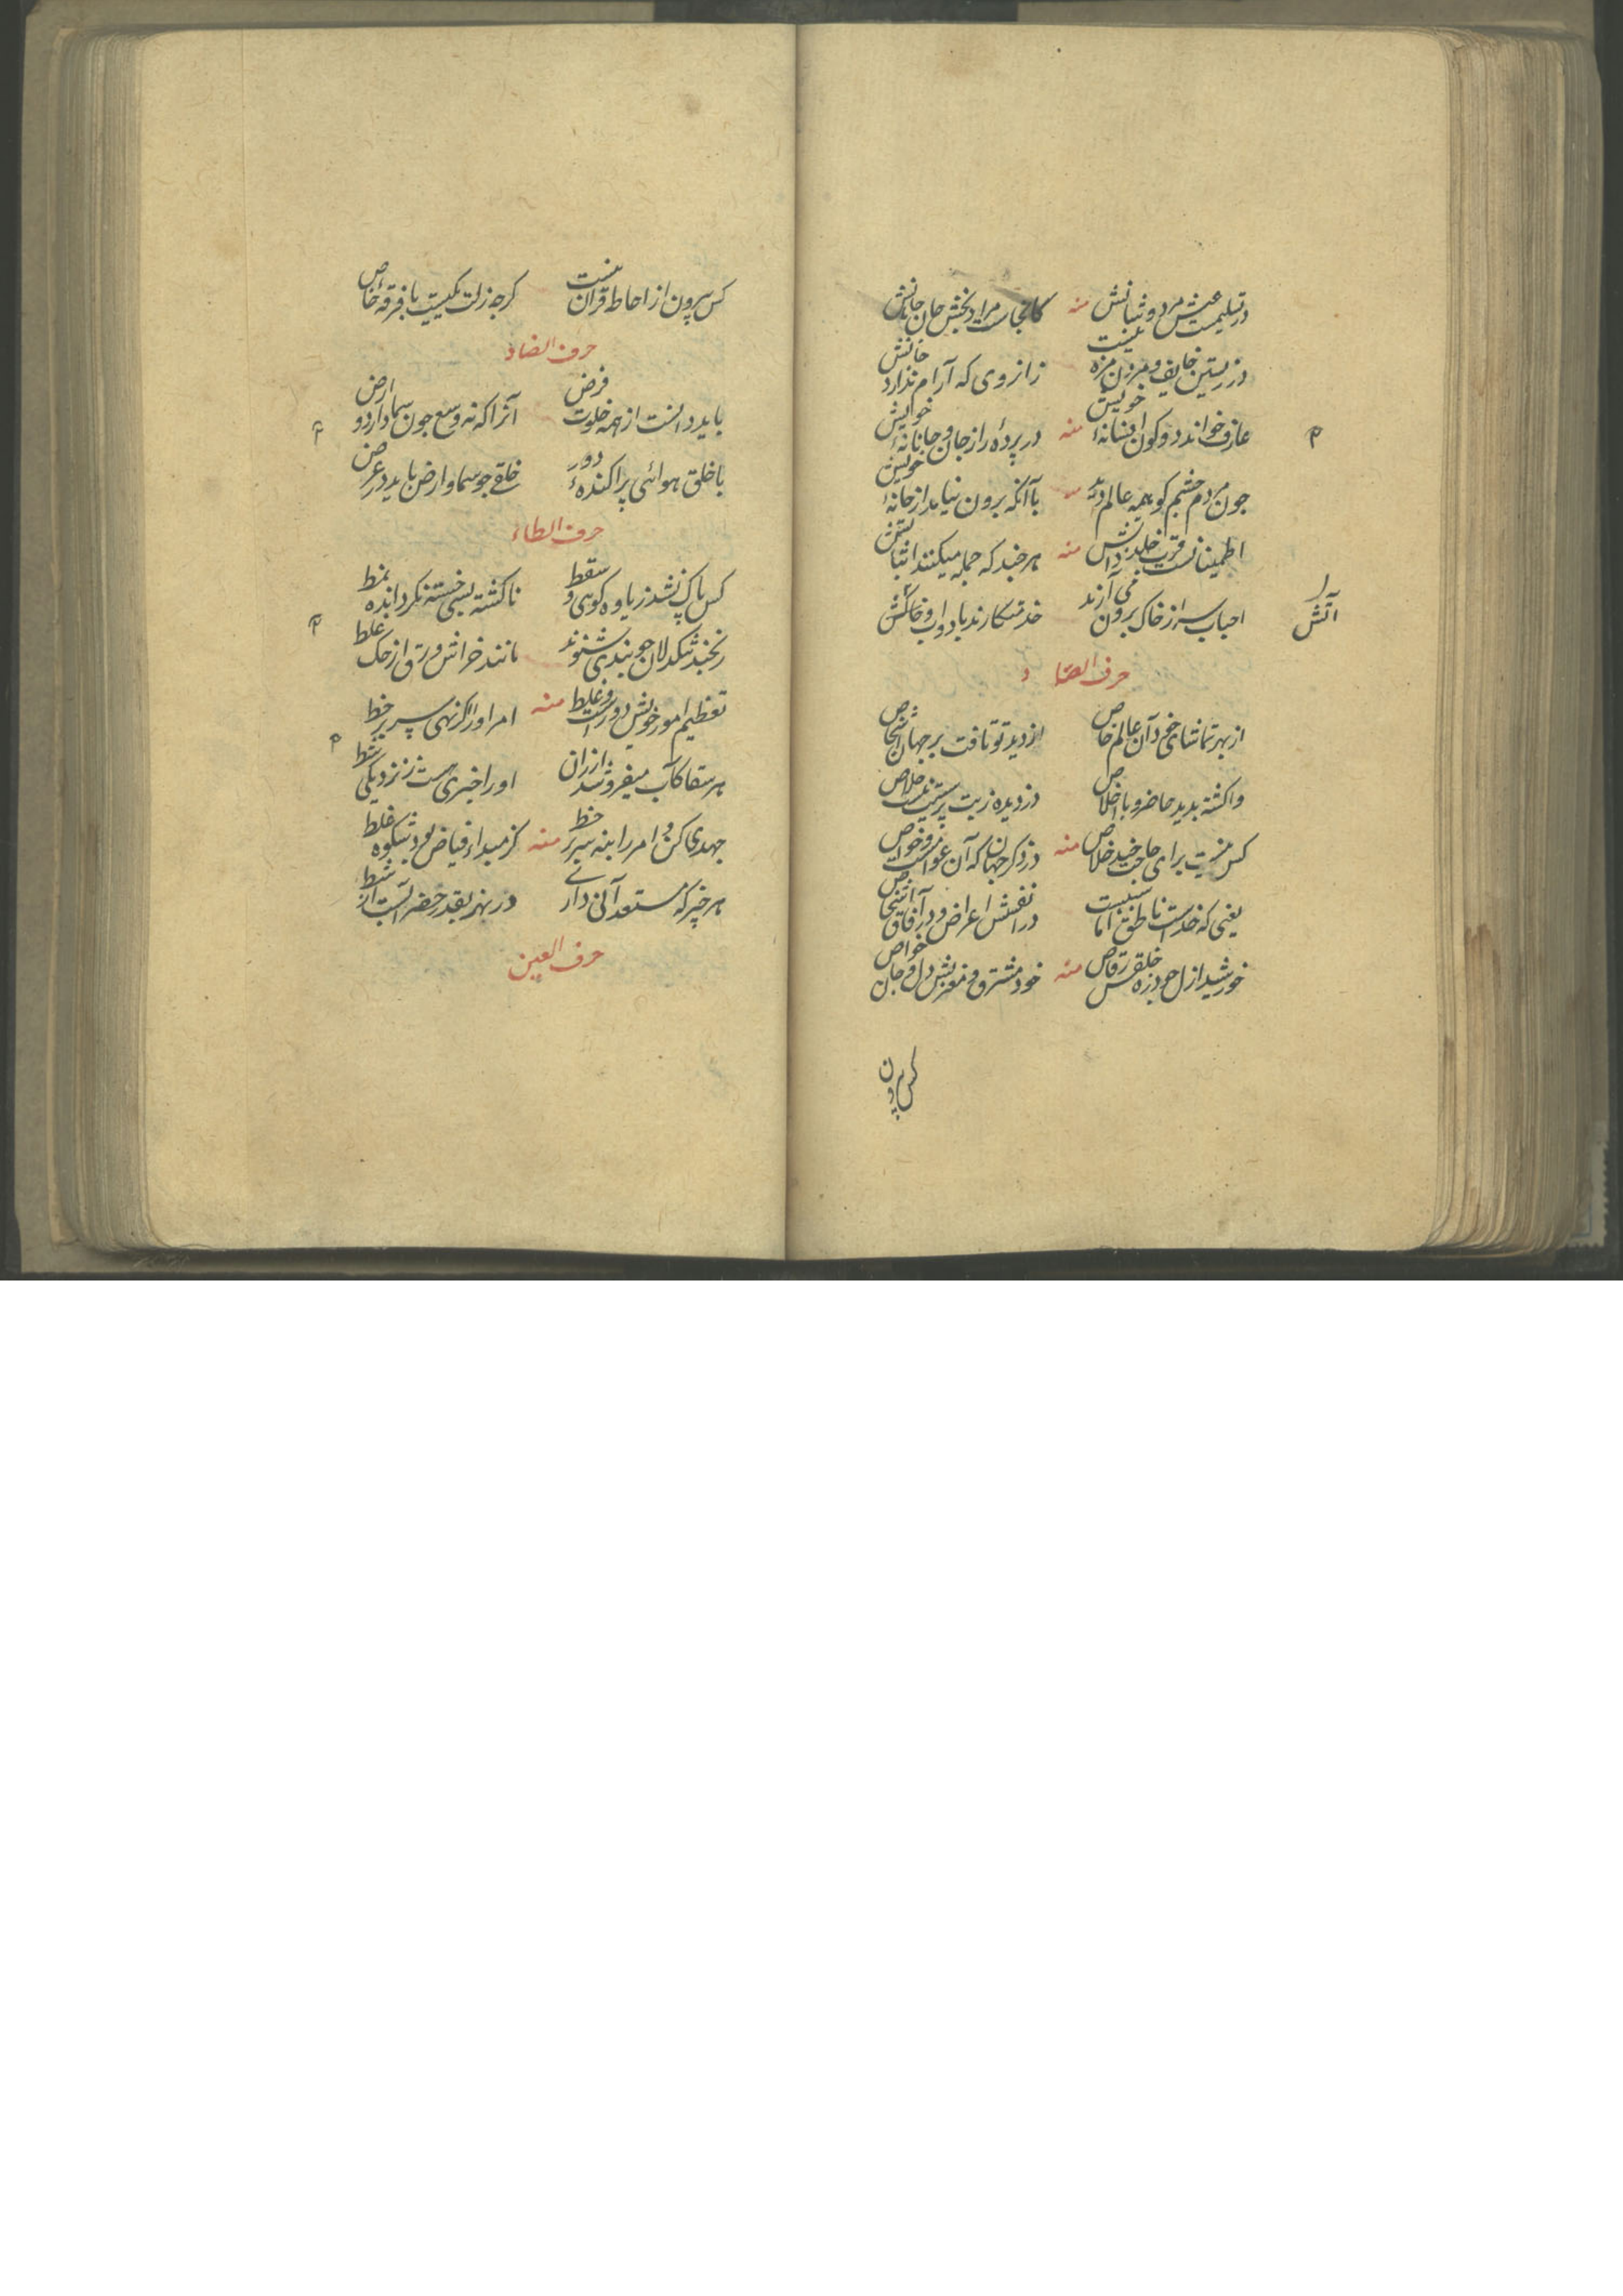 در تسلیمست عیش مرد و ثباتش منه کانجاست مراد بخش جان جانانش
در زیستن خایف و مردن مزه نیست زانروی که آرام ندارد جانش
عارف خواند دو کون افسانهٔ خویش منه در پردهٔ راز جان و جانانهٔ خویش
چون مردم چشم کو همه عالم دید با آنکه برون نیامد از خانهٔ خویش
اطمینانست قرب خلد دانش منه هر چند که جمله میکنند
احباب سر از خاک برون می آرند خدمتکارند باد و آب و خاکش
را
آتش
حرف الصاد
از بهر تماشای خود آن عالم خاص از دید تو تافت بر جهان اشخاص
واگشته بدید حاضر و با اخلاص در دیده زیت پرستیت خلاص
کس نیست برای حاجت خلاص منه در ذکر جهان که آن عوامست و خواص
یعنی که خداست ناطق اما در انفسش اعراض و در آفاق اشخاص
خورشید ازل چو ذره خلقش رقاص منه خود مشرق و مغربش دل و جان خواص
کس بیرون
کس بیرون از احاطه قرآن نیست گرچه زلت نکیست با فرقهٔ خاص
حرف الضاد
باید دانست از همه خلوت فرض آنرا که نه وسع چون سما دارد و ارض
با خلق هوائی پراکندهٔ دور خلقی چو سما و ارض باید در عرض
حرف الطاء
کس پاک نشد ز یاوه گوئی و سقط ناگشته بسی خسته نگردانده نمط
رنجند تنکدلان چو پندی شنوند مانند خراش ورق از حک غلط
تعظیم امور خویش دورست و غلط منه امر او را گر نهی سر بر خط
هر سقا کآب میفروشد ارزان او را خبری هست ز نزدیکی شط
جهدی کن و امر را بنه سر بر خط منه کز مبداء فیاض بود شکوه غلط
هر چیز که مستعد آنی داری در نهر بقدر حفر آبست از شط
حرف العین